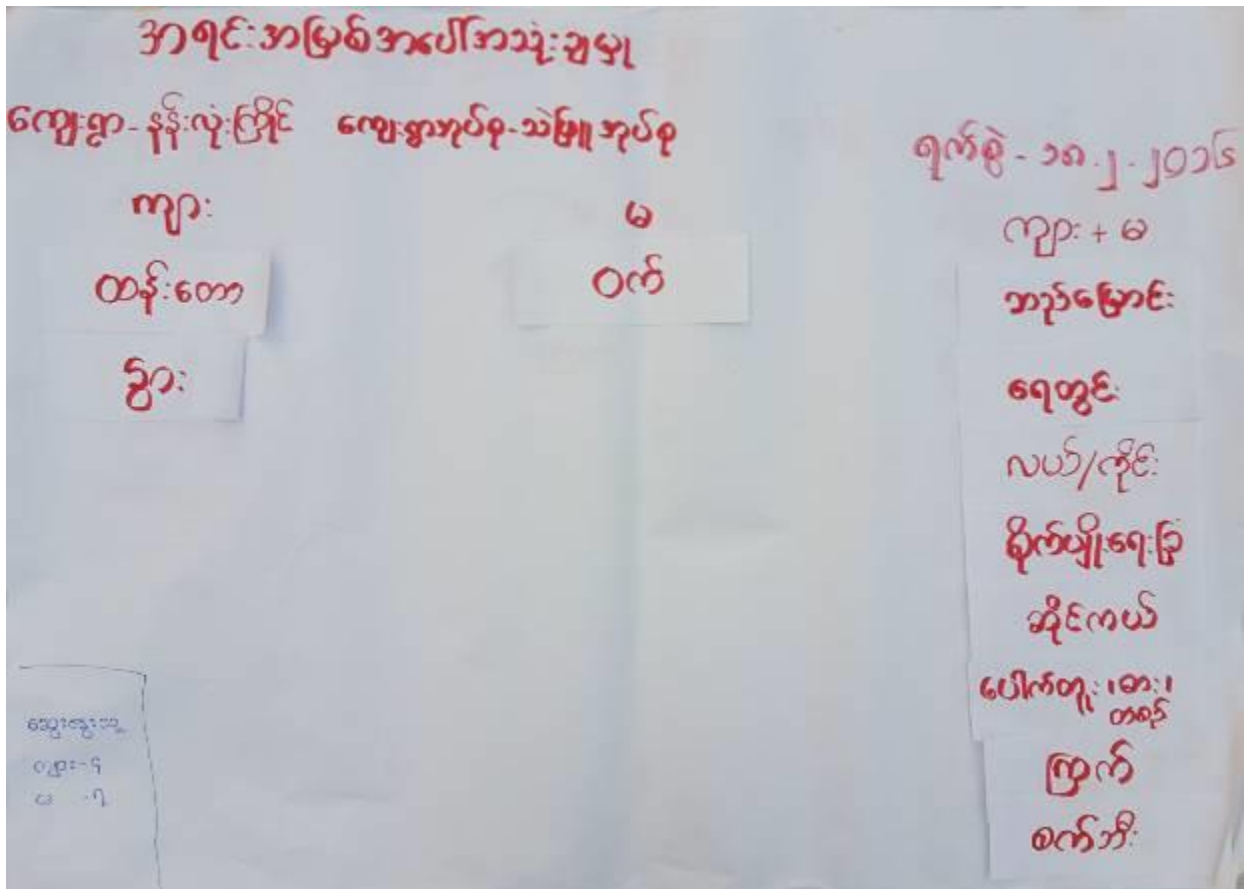 အရင်းအမြစ်အပေါ်အသုံးချမှု
ကျေးရွာ-နန်းလုံးကြိုင် ကျေးရွာအုပ်စု-သဲဖြူအုပ်စု
ရက်စွဲ - ၁၈.၂.၂၀၁၆
ကျား မ ကျား + မ
ထန်းတော ဝက် ဘဉ်မြောင်း
နွား ရေတွင်း
လယ်/ကိုင်း
စိုက်ပျိုးရေးခြံ
ဆိုင်ကယ်
ပေါက်တူး၊ဓား၊
တစဉ်
ကြက်
စက်ဘီး
ဆွေးနွေးသူ
ကျား-၄
မ -၇